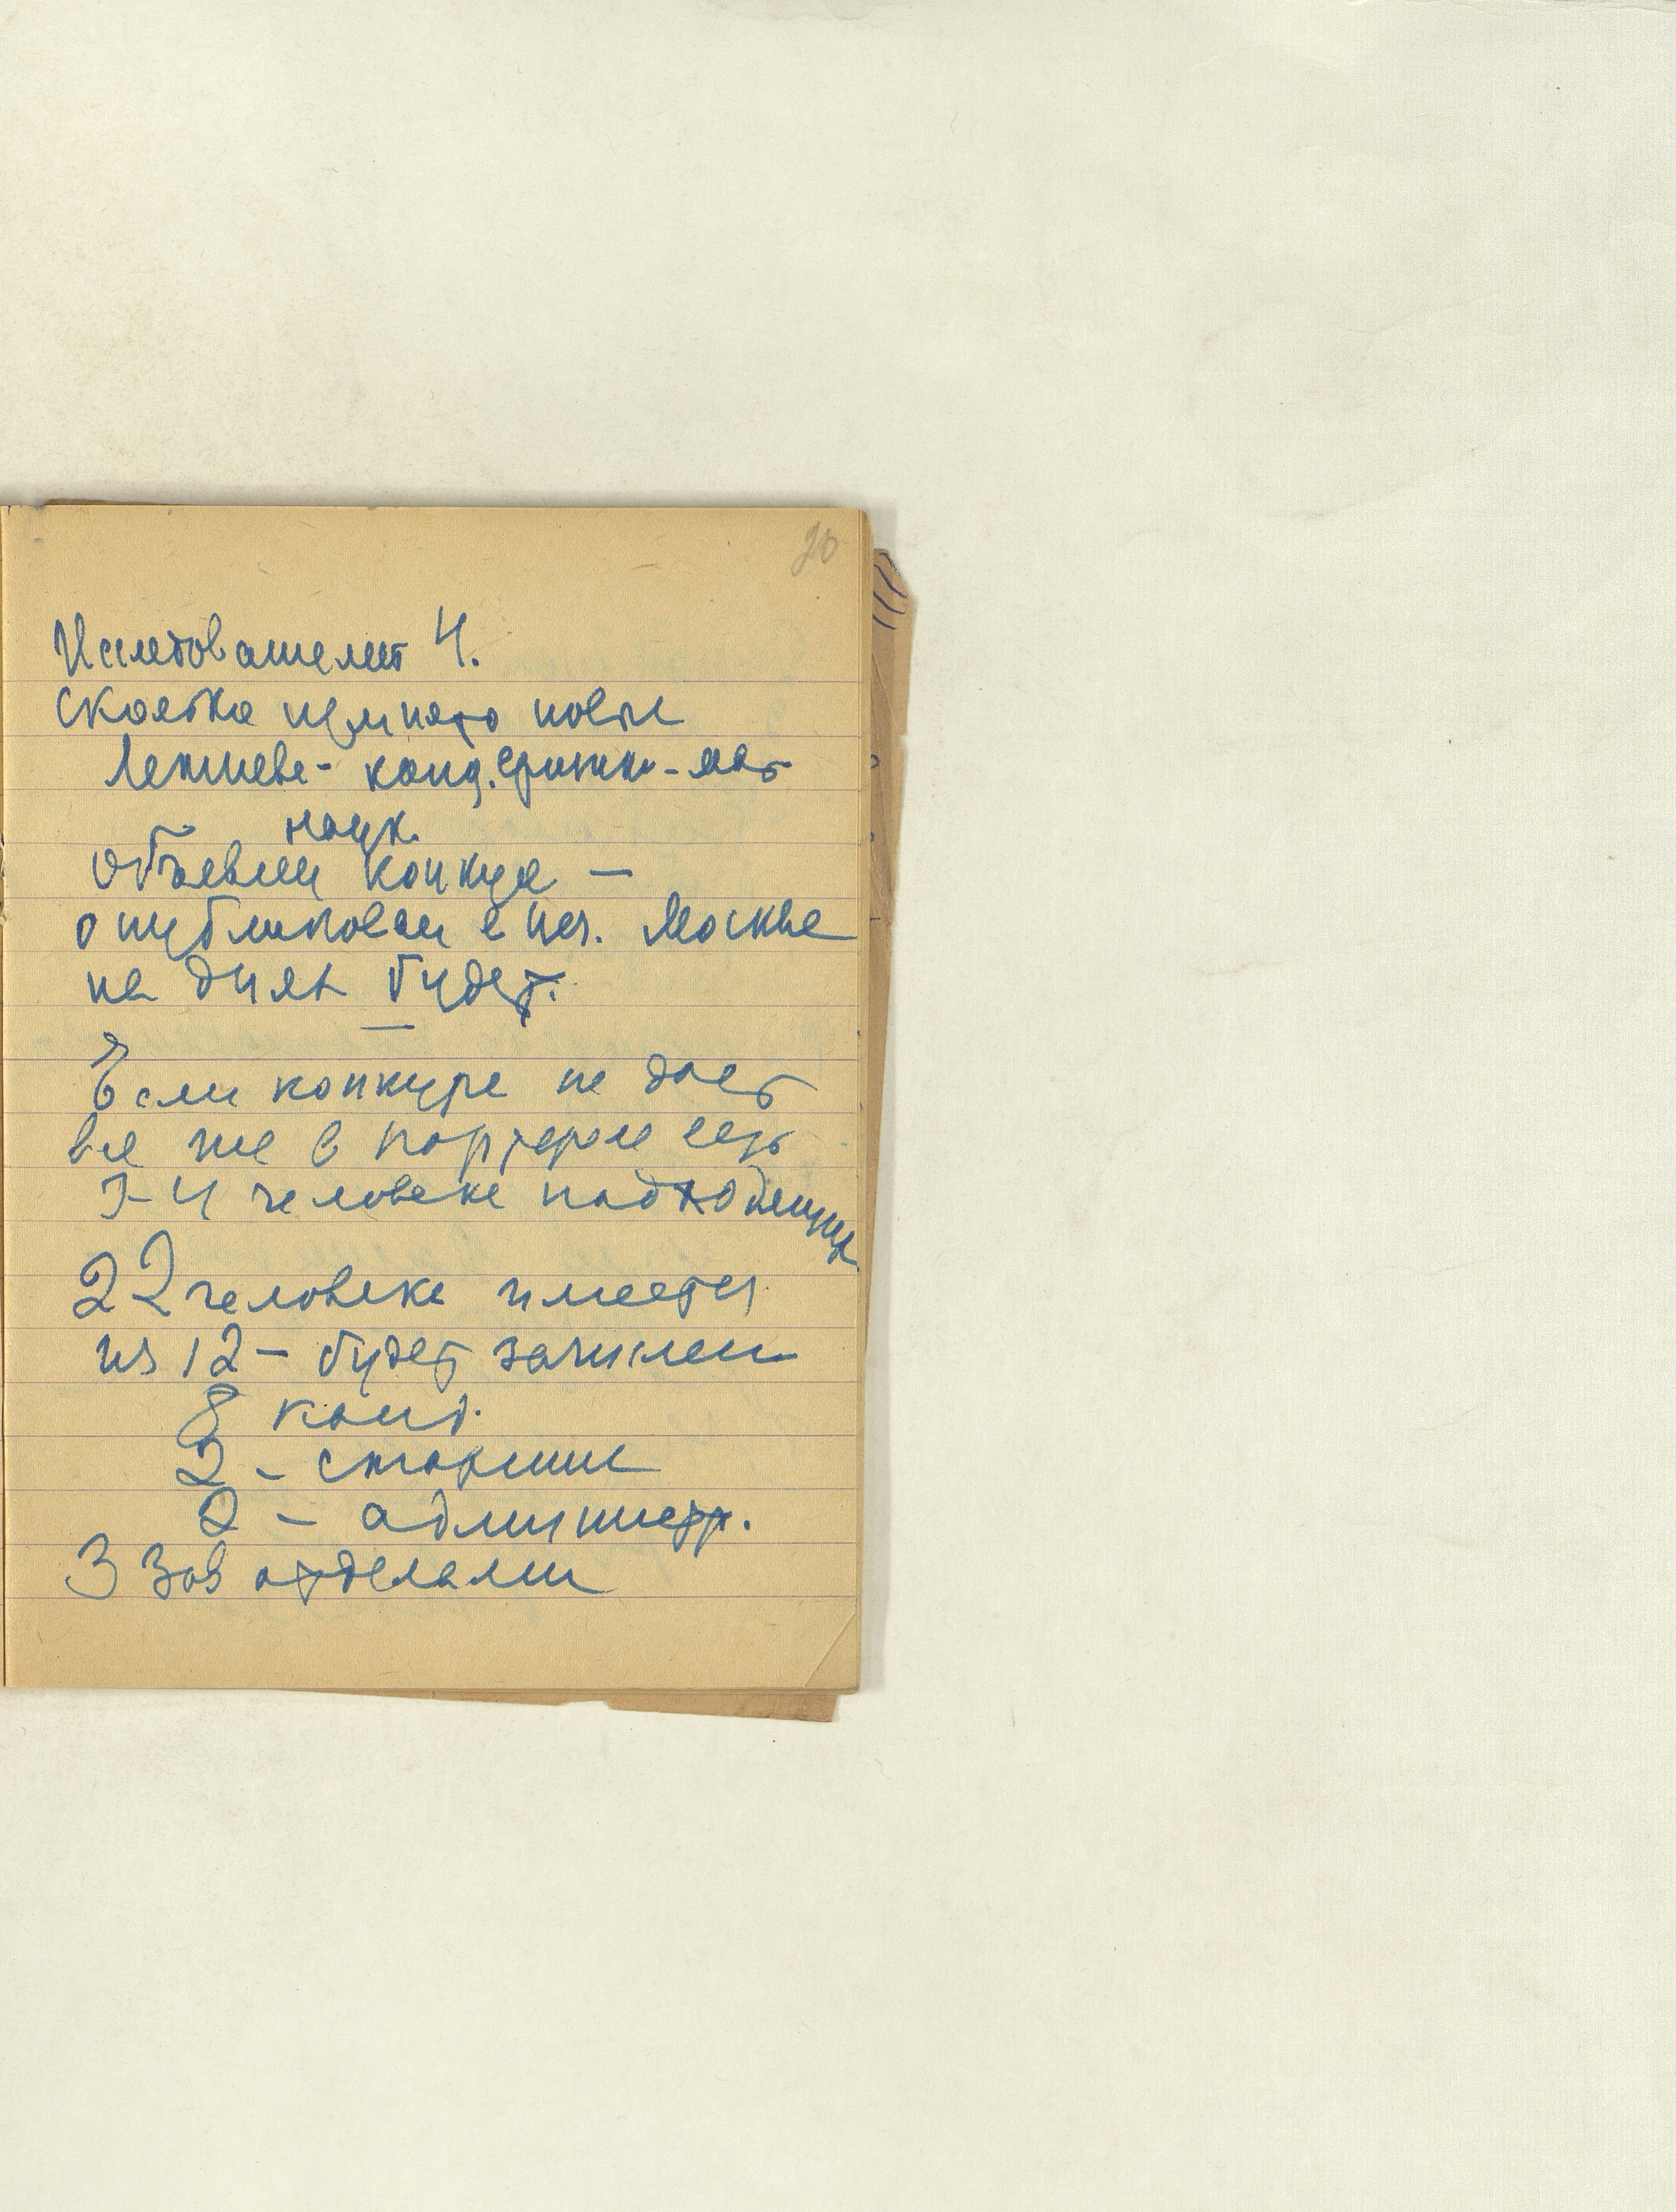 20
Исследователей 4.
Сколько принято новых
канд. физик-мат
наук.
объявлен конкурс —
опубликован в Москве
на днях будет.
Если конкурс не даст
все же в портфеле есть
3-4 человека подходящих
22 человека имеется
из 12 — будет зачислен
8 канд.
2 — старших
2 — администр.
3 зав отделами